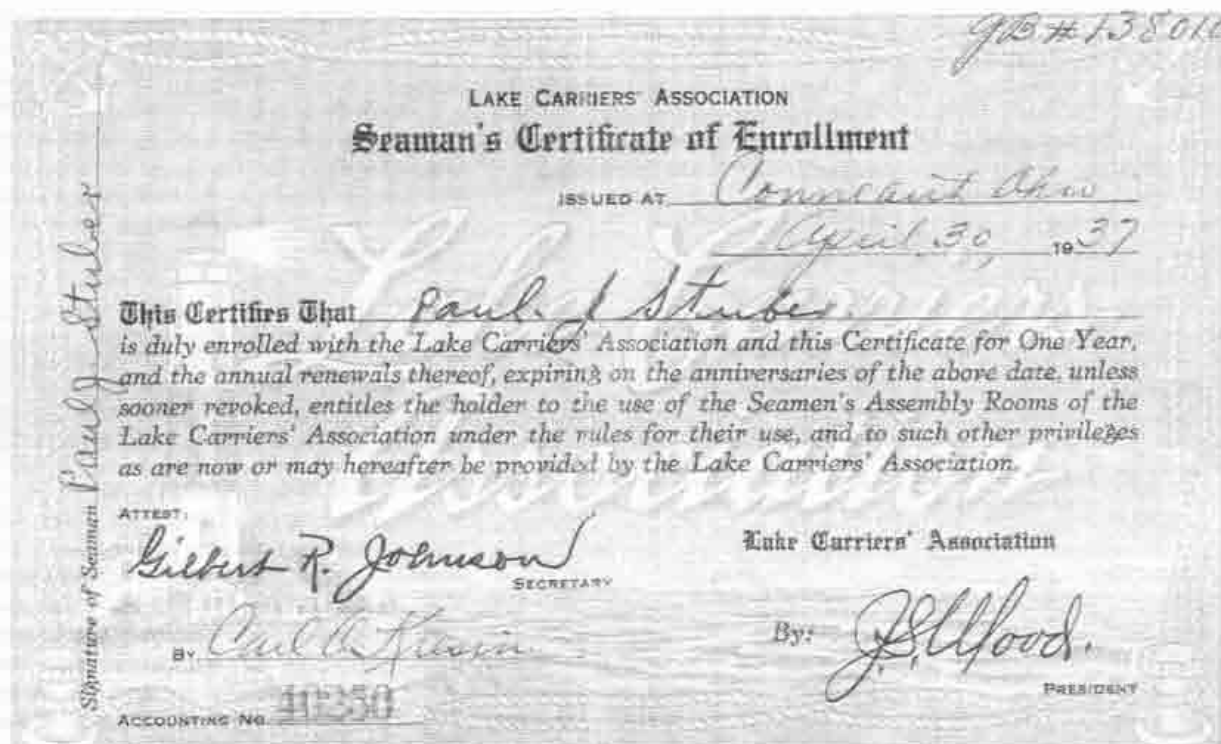 GB # 13801
LAKE CARRIERS' ASSOCIATION
Seaman's Certificate of Enrollment
ISSUED AT Conneaut Ohio
April 30, 1937
This Certifies That Paul J Stuber
is duly enrolled with the Lake Carriers' Association and this Certificate for One Year,
and the annual renewals thereof, expiring on the anniversaries of the above date, unless
sooner revoked, entitles the holder to the use of the Seamen's Assembly Rooms of the
Lake Carriers' Association under the rules for their use, and to such other privileges
as are now or may hereafter be provided by the Lake Carriers' Association.
ATTEST:
Gilbert R. Johnson
SECRETARY
BY Carl A.
ACCOUNTING NO. 40350
Lake Carriers' Association
By: Wood.
PRESIDENT
Signature of Seaman Paul J Stuber
Lake Carriers
Association